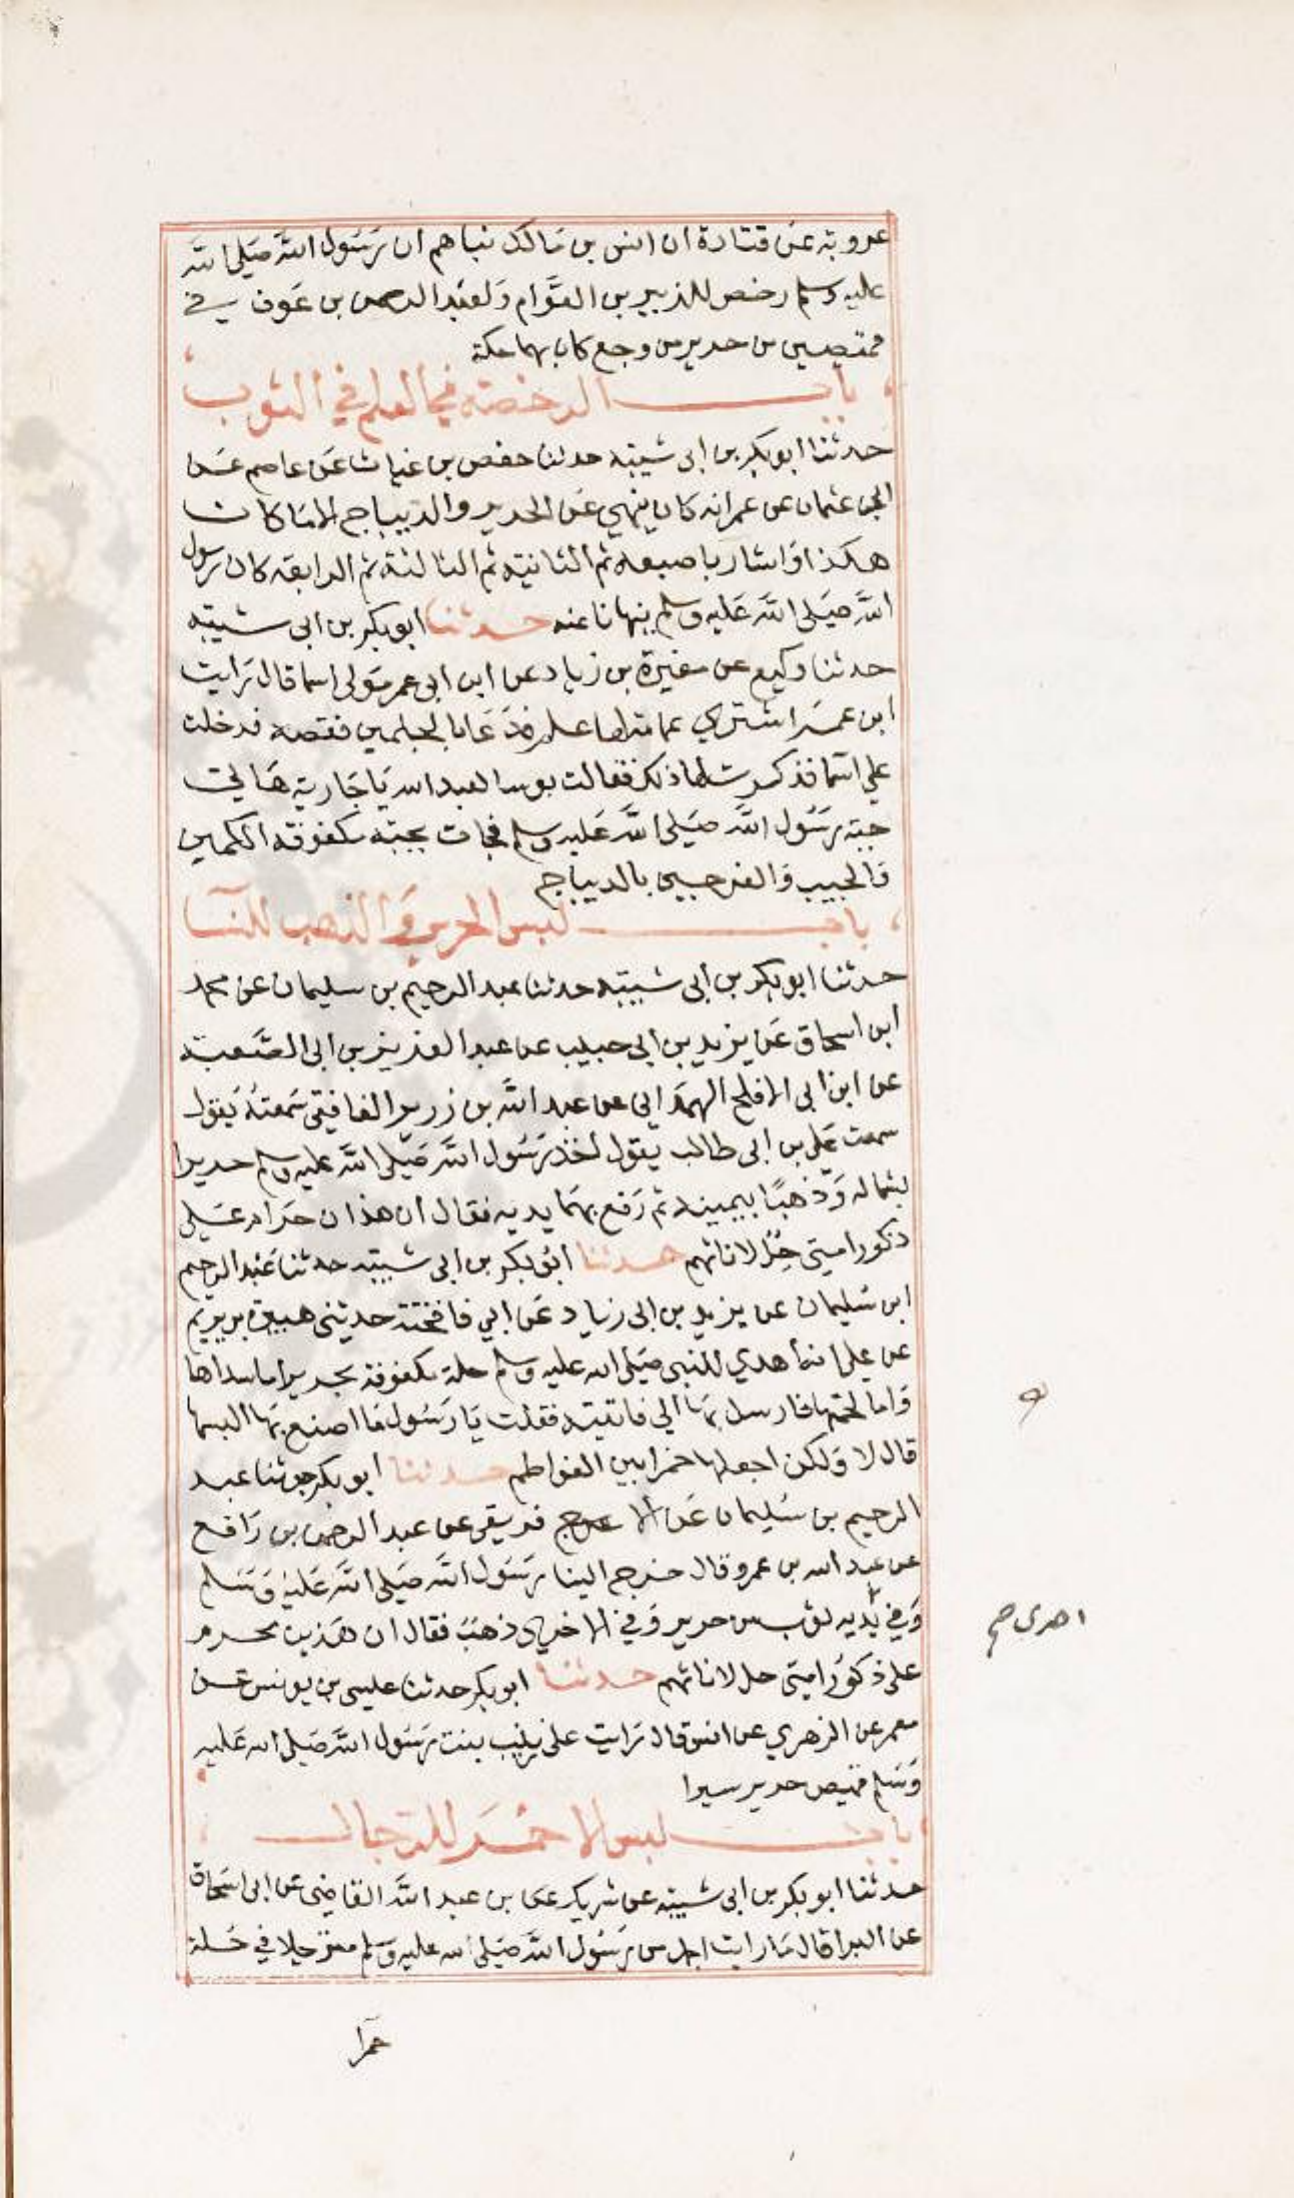 عروبة عن قتادة ان انس بن مالك نباهم ان رَسُول اللَّه صَلى اللَّه
عليه وسلم رخص للزبير بن العَوَّام وَلعَبد الرحمن بن عَوف في
قميصين من حرير من وجع كان بهما حكة
باب الرخصة في العلم في الثوب
حدثنا ابو بكر بن ابى شيبة حدثنا حفص بن غياث عَن عاصم عَن
ابى عثمان عن عمر انه كان ينهي عَن الحرير والديباج الا مَا كان
هكذا وَاشار باصبعه ثم الثانية ثم الثالثة ثم الرابعة كان رسول
اللَّه صَلى اللَّه عَليه وسلم ينهانا عنه حدثنا ابو بكر بن ابى شيبة
حدثنا وكيع عن مغيرة بن زياد عن ابى عمر مَولى اسما قال رَايت
ابن عمَر اشترى عمامة لها علم فدَعَا بالجلمين فقصه فدخلت
علي اسَما فذكرت لها ذلك فقالت بوسا لعبد الله يَا جَارية هَاتي
جبة رَسُول اللَّه صَلى اللَّه عَليه وسلم فجات بجبة مكفوفة الكمين
وَالجيب وَالفرجين بالديباج
باب لبس الحرير وَالذهب للنسا
حدثنا ابو بكر بن أبى شيبة حدثنا عبد الرحيم بن سليمان عن محمد
ابن اسحاق عَن يزيد بن ابي حبيب عن عبد العزيز بن ابى الصَعبة
عن ابن ابى الافلح الهمدَاني عن عبد اللَّه بن زرير الغافقي سَمعتهُ يَقول
سمعت عَلى بن ابى طالب يقول اخذ رَسُول اللَّه صَلى اللَّه عليه وسلم حريرا
بشماله وَذهبًا بيمينه ثم رَفع بهمَا يديه فقال ان هذان حرَام عَلي
ذكور امتي حِل لاناثهم حدثنا ابو بكر بن ابى شيبة حدثنا عَبْد الرحيم
ابن سُليمان عن يزيد بن ابى زياد عَن ابي فاختة حدثني هبيرة بن يريم
عن علي انهُ أهدي للنبى صَلى الله عليه وسلم حلة مكفوفة بحرير اما سداها
وَاما لحمتها فارسل بهَا الي فاتيته فقلت يَا رَسُول مَا اصنع بهَا البسها
قال لا وَلكن اجعلها خمرا بين الفواطم حدثنا ابو بكر حدثنا عبد
الرحيم بن سُليمان عَن الا عرج فريقي عن عبد الرحمن بن رَافع
عن عبد الله بن عمرو قال خرج الينا رَسُول اللَّه صَلى اللَّه عَليهِ وَسَلم
وَفي يَديه ثوب من حرير وَفي الاخرى ذهبٌ فقال ان هَذين محرم
على ذكوُر امتي حل لاناثهم حدثنا ابو بكر حدثنا عيسى بن يونس عَن
معمر عن الزهري عن انس قال رَايت على زينب بنت رَسُول اللَّه صَلى الله عَليه
وَسَلم قميص حرير سيرا
باب لبس الاحمَر للرجال
حدثنا ابو بكر بن ابى شيبة عن شريك عن بن عبد اللَّه القاضى عن ابى اسَحاق
عن البرا قال مَا رايت اجمل من رَسُول اللَّه صَلى الله عليه وسلم مترجلا في حُلة
احدى صح
حمرآ